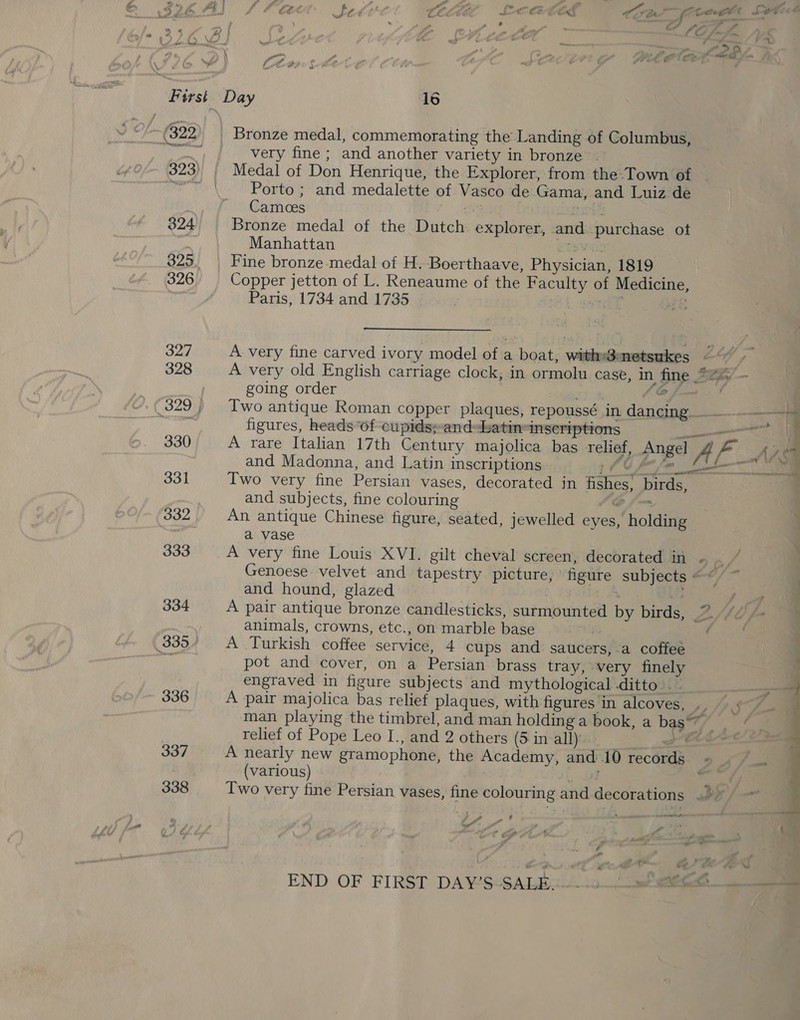 326 A)
326 B)
326
First Day 16
322 Bronze medal, commemorating the Landing of Columbus,
very fine ; and another variety in bronze
323 Medal of Don Henrique, the Explorer, from the Town of
Porto ; and medalette of Vasco de Gama, and Luiz de
Camœs
324 Bronze medal of the Dutch explorer, and purchase of
Manhattan
325 Fine bronze medal of H. Boerthaave, Physician, 1819
326 Copper jetton of L. Reneaume of the Faculty of Medicine,
Paris, 1734 and 1735
327 A very fine carved ivory model of a boat, with 3 netsukes
328 A very old English carriage clock, in ormolu case, in fine
going order
329 Two antique Roman copper plaques, repoussé in dancing
figures, heads of cupids, and Latin inscriptions
330 A rare Italian 17th Century majolica bas relief, Angel
and Madonna, and Latin inscriptions
331 Two very fine Persian vases, decorated in fishes, birds,
and subjects, fine colouring
332 An antique Chinese figure, seated, jewelled eyes, holding
a vase
333 A very fine Louis XVI. gilt cheval screen, decorated in
Genoese velvet and tapestry picture, figure subjects
and hound, glazed
334 A pair antique bronze candlesticks, surmounted by birds,
animals, crowns, etc., on marble base
335 A Turkish coffee service, 4 cups and saucers, a coffee
pot and cover, on a Persian brass tray, very finely
engraved in figure subjects and mythological ditto
336 A pair majolica bas relief plaques, with figures in alcoves,
man playing the timbrel, and man holding a book, a bas
relief of Pope Leo I., and 2 others (5 in all)
337 A nearly new gramophone, the Academy, and 10 records
(various)
338 Two very fine Persian vases, fine colouring and decorations
END OF FIRST DAY'S SALE.